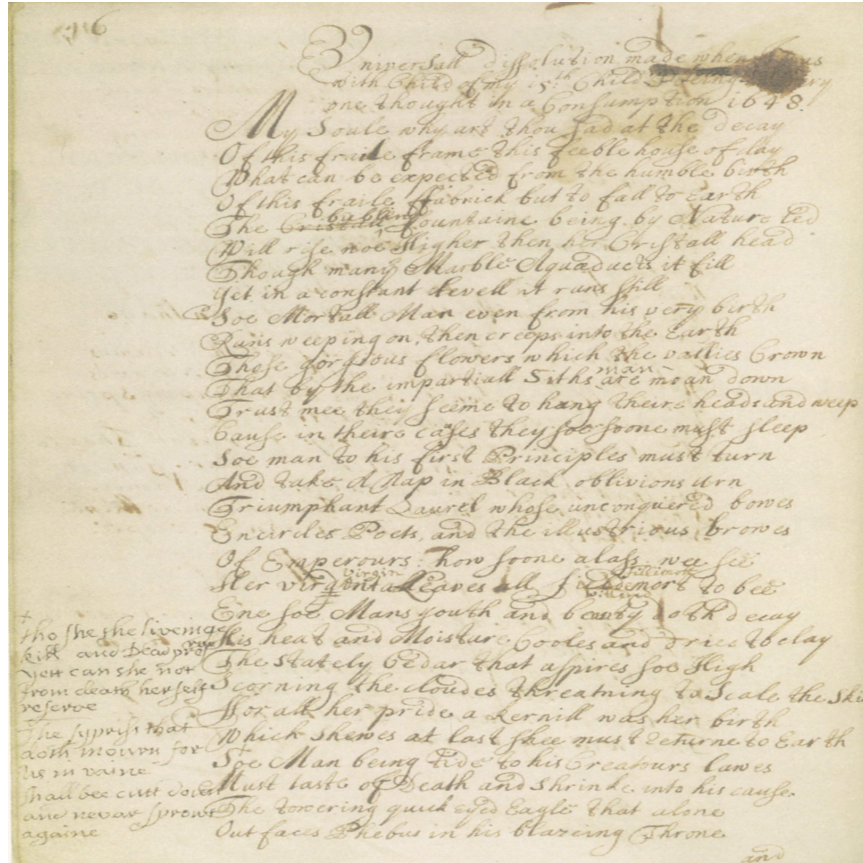 Universall dissolution, made when I was
with Child of my 15th Child
one thought in a Consumption 1648.
My Soule why art thou sad at the decay
Of this fraile frame this feeble house of clay
What can be expected from the humble birth
Of this fraile ffabrick but to fall to Earth
The Cristall bubling ffountaine being by Nature led
Will rise noe Higher then her Cristall head
Though many Marble Aquaducts it fill
Yet in a constant Levell it runs still
Soe Mortall Man even from his very birth
Runs weeping on, then creeps into the Earth
Those gorgious flowers which the vallies Crown
That by the impartiall Siths man are moan down
Trust mee they seeme to hang theire heads and weep
Cause in theire cases they soe soone must sleep
Soe man to his first Principles must turn
And take A Nap in Black oblivions urn
Triumphant Laurel whose unconquered bowes
Encircles Poets, and the illustrious browes
Of Emperours: how soone alass wee see
Her virgin Leaves all to bee
Ene soe Mans youth and beuty doth decay
His heat and Moisture Cooles and dries to clay
The stately Cedar that aspires soe High
Scorning the cloudes threatning to Scale the Skie
For all her pride a kernill was her birth
Which shewes at last shee must returne to Earth
Soe Man being tide to his Creatours lawes
Must taste of Death and shrinke into his cause
The towering quick eyed Eagle that alone
Out faces Phebus in his blazeing Throne
and
tho she she liveing
kill and Dead
yett can she not
from death her selfe
reserve
The syprish that
doth mourn for
us in vaine
shall bee cutt down
and never sprout
againe